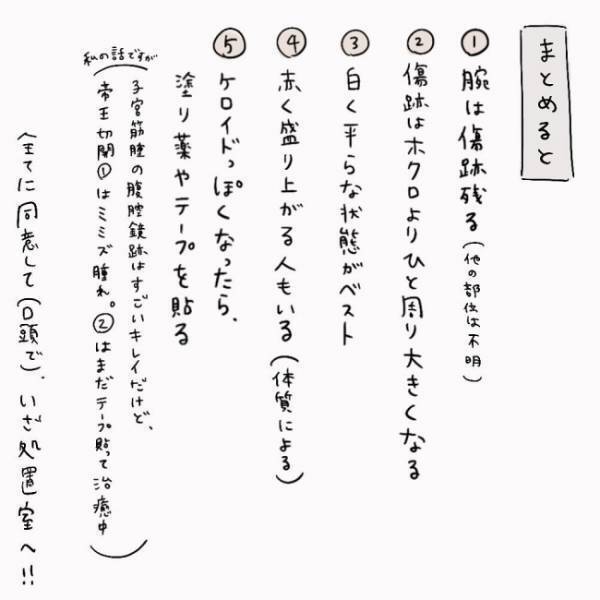 まとめると
①腕は傷跡残る(他の部位は不明)
②傷跡はホクロよりひと周り大きくなる
③白く平らな状態がベスト
④赤く盛り上がる人もいる(体質による)
⑤ケロイドっぽくなったら、
塗り薬やテープを貼る
私の話ですが
(子宮筋腫の腹腔鏡跡はすごいキレイだけど、
帝王切開①はミミズ腫れ。②はまだテープ貼って治癒中)
全てに同意して(口頭で)、いざ処置室へ!!